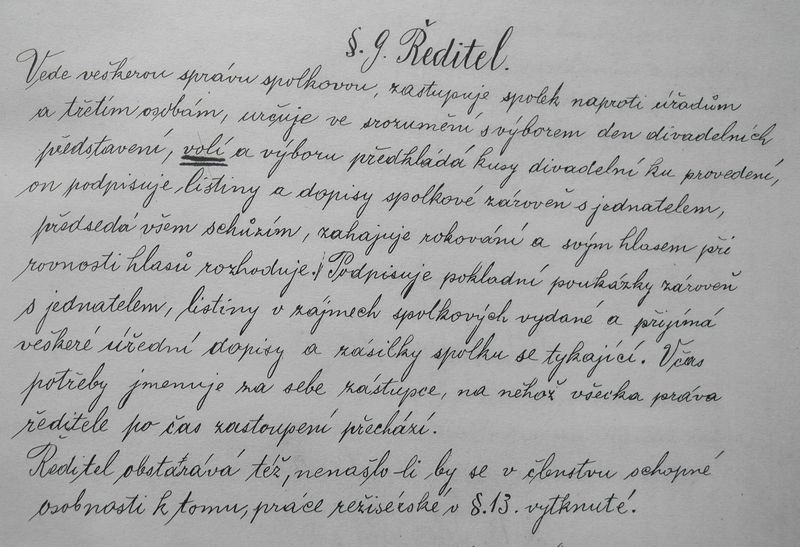 §. 9. Ředitel.
Vede veškerou správu spolkovou, zastupuje spolek naproti úřadům
a třetím osobám, určuje ve srozumění s výborem den divadelních
představení, volí a výboru předkládá kusy divadelní ku provedení,
on podpisuje listiny a dopisy spolkové zároveň s jednatelem,
předsedá všem schůzím, zahajuje rokování a svým hlasem při
rovnosti hlasů rozhoduje. Podpisuje pokladní poukázky zároveň
s jednatelem, listiny v zájmech spolkových vydané a přijímá
veškeré úřední dopisy a zásilky spolku se tykající. Včas
potřeby jmenuje za sebe zástupce, na něhož všecka práva
ředitele po čas zastoupení přechází.
Ředitel obstarává též, nenašlo-li by se v členstvu schopné
osobnosti k tomu, práce režisérské v §. 13. vytknuté.